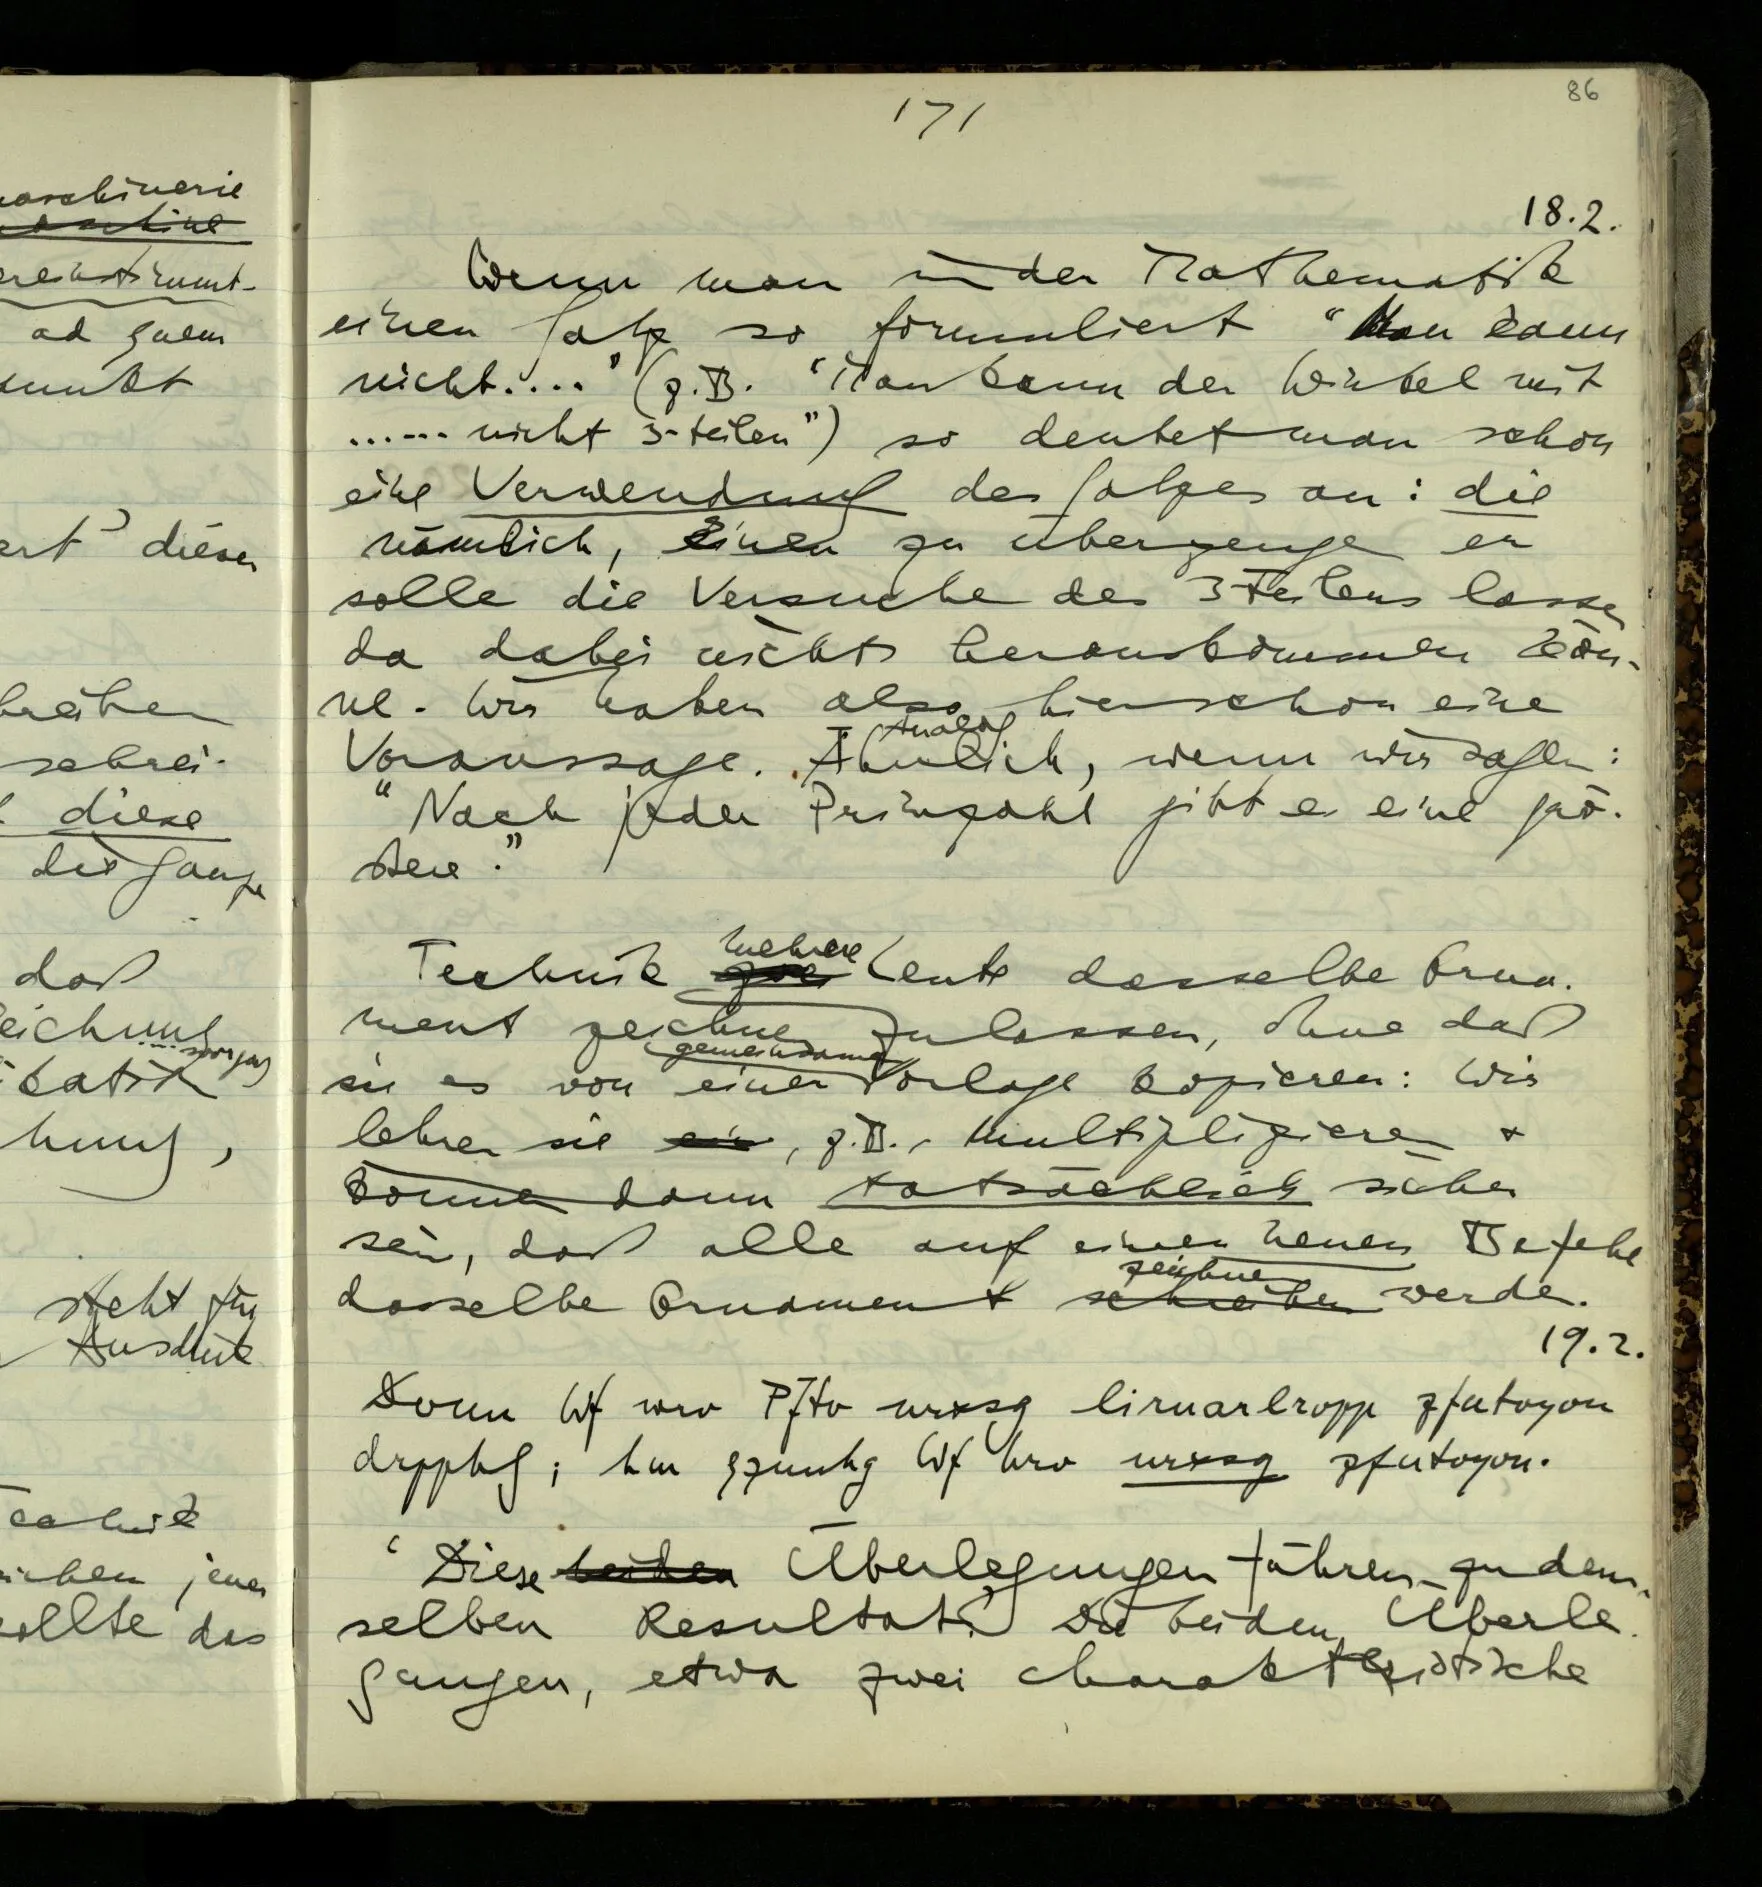 maschinerie
ad quem
diesen
schrei-
diese
die ganze
daß
steht für
sollte das
86
171
18.2.
Wenn man in der Mathematik
einen Satz so formuliert "Man kann
nicht...." (z.B. "Man kann den Winkel mit
...... nicht 3-teilen") so deutet man schon
eine Verwendung des Satzes an: die
nämlich, Einen zu überzeugen er
solle die Versuche des 3-Teilens lassen
da dabei nichts herauskommen kön-
ne. Wir haben also hier schon eine
Analog
Voraussage. Ähnlich, wenn wir sagen:
"Nach jeder Primzahl gibt es eine grö-
ßere."
mehrere
Technik zwei Leute dasselbe Orna-
ment zeichnen zu lassen, ohne daß
gemeinsamen
sie es von einer Vorlage kopieren: Wir
lehren sie ein, z.B., Multiplizieren &
können dann tatsächlich sicher
sein, daß alle auf einen neuen Befehl
zeichnen
dasselbe Ornament schreiben werden.
19.2.
Donn Wf wro Pfto nrxsg lirnarlropp zfutoyon
drpphg; hm qznnhg Wf hro nrxsg zfutoyon.
'Diese beiden Überlegungen führen zu dem-
selben Resultat.' Die beiden Überle-
gungen, etwa zwei charakteristische